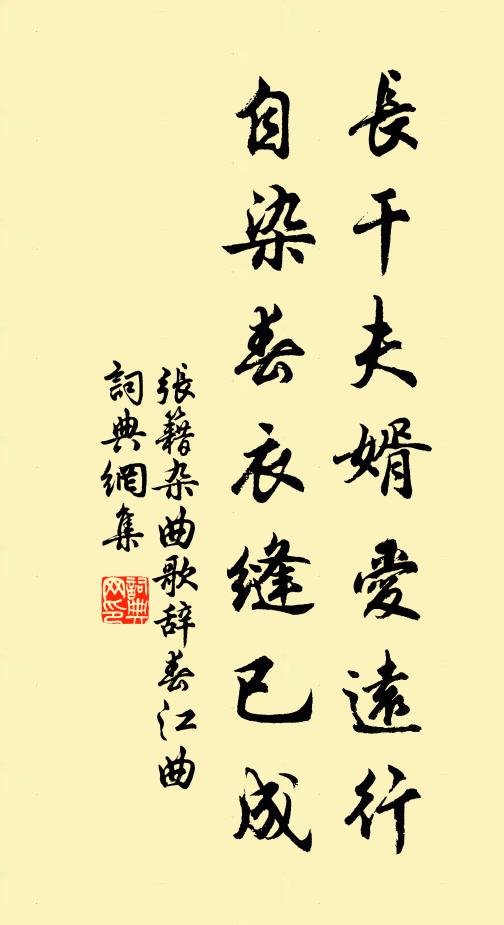 長干夫婿愛遠行
自染春衣縫已成
張籍杂曲歌辞春江曲
詞典網集
詞典
网印